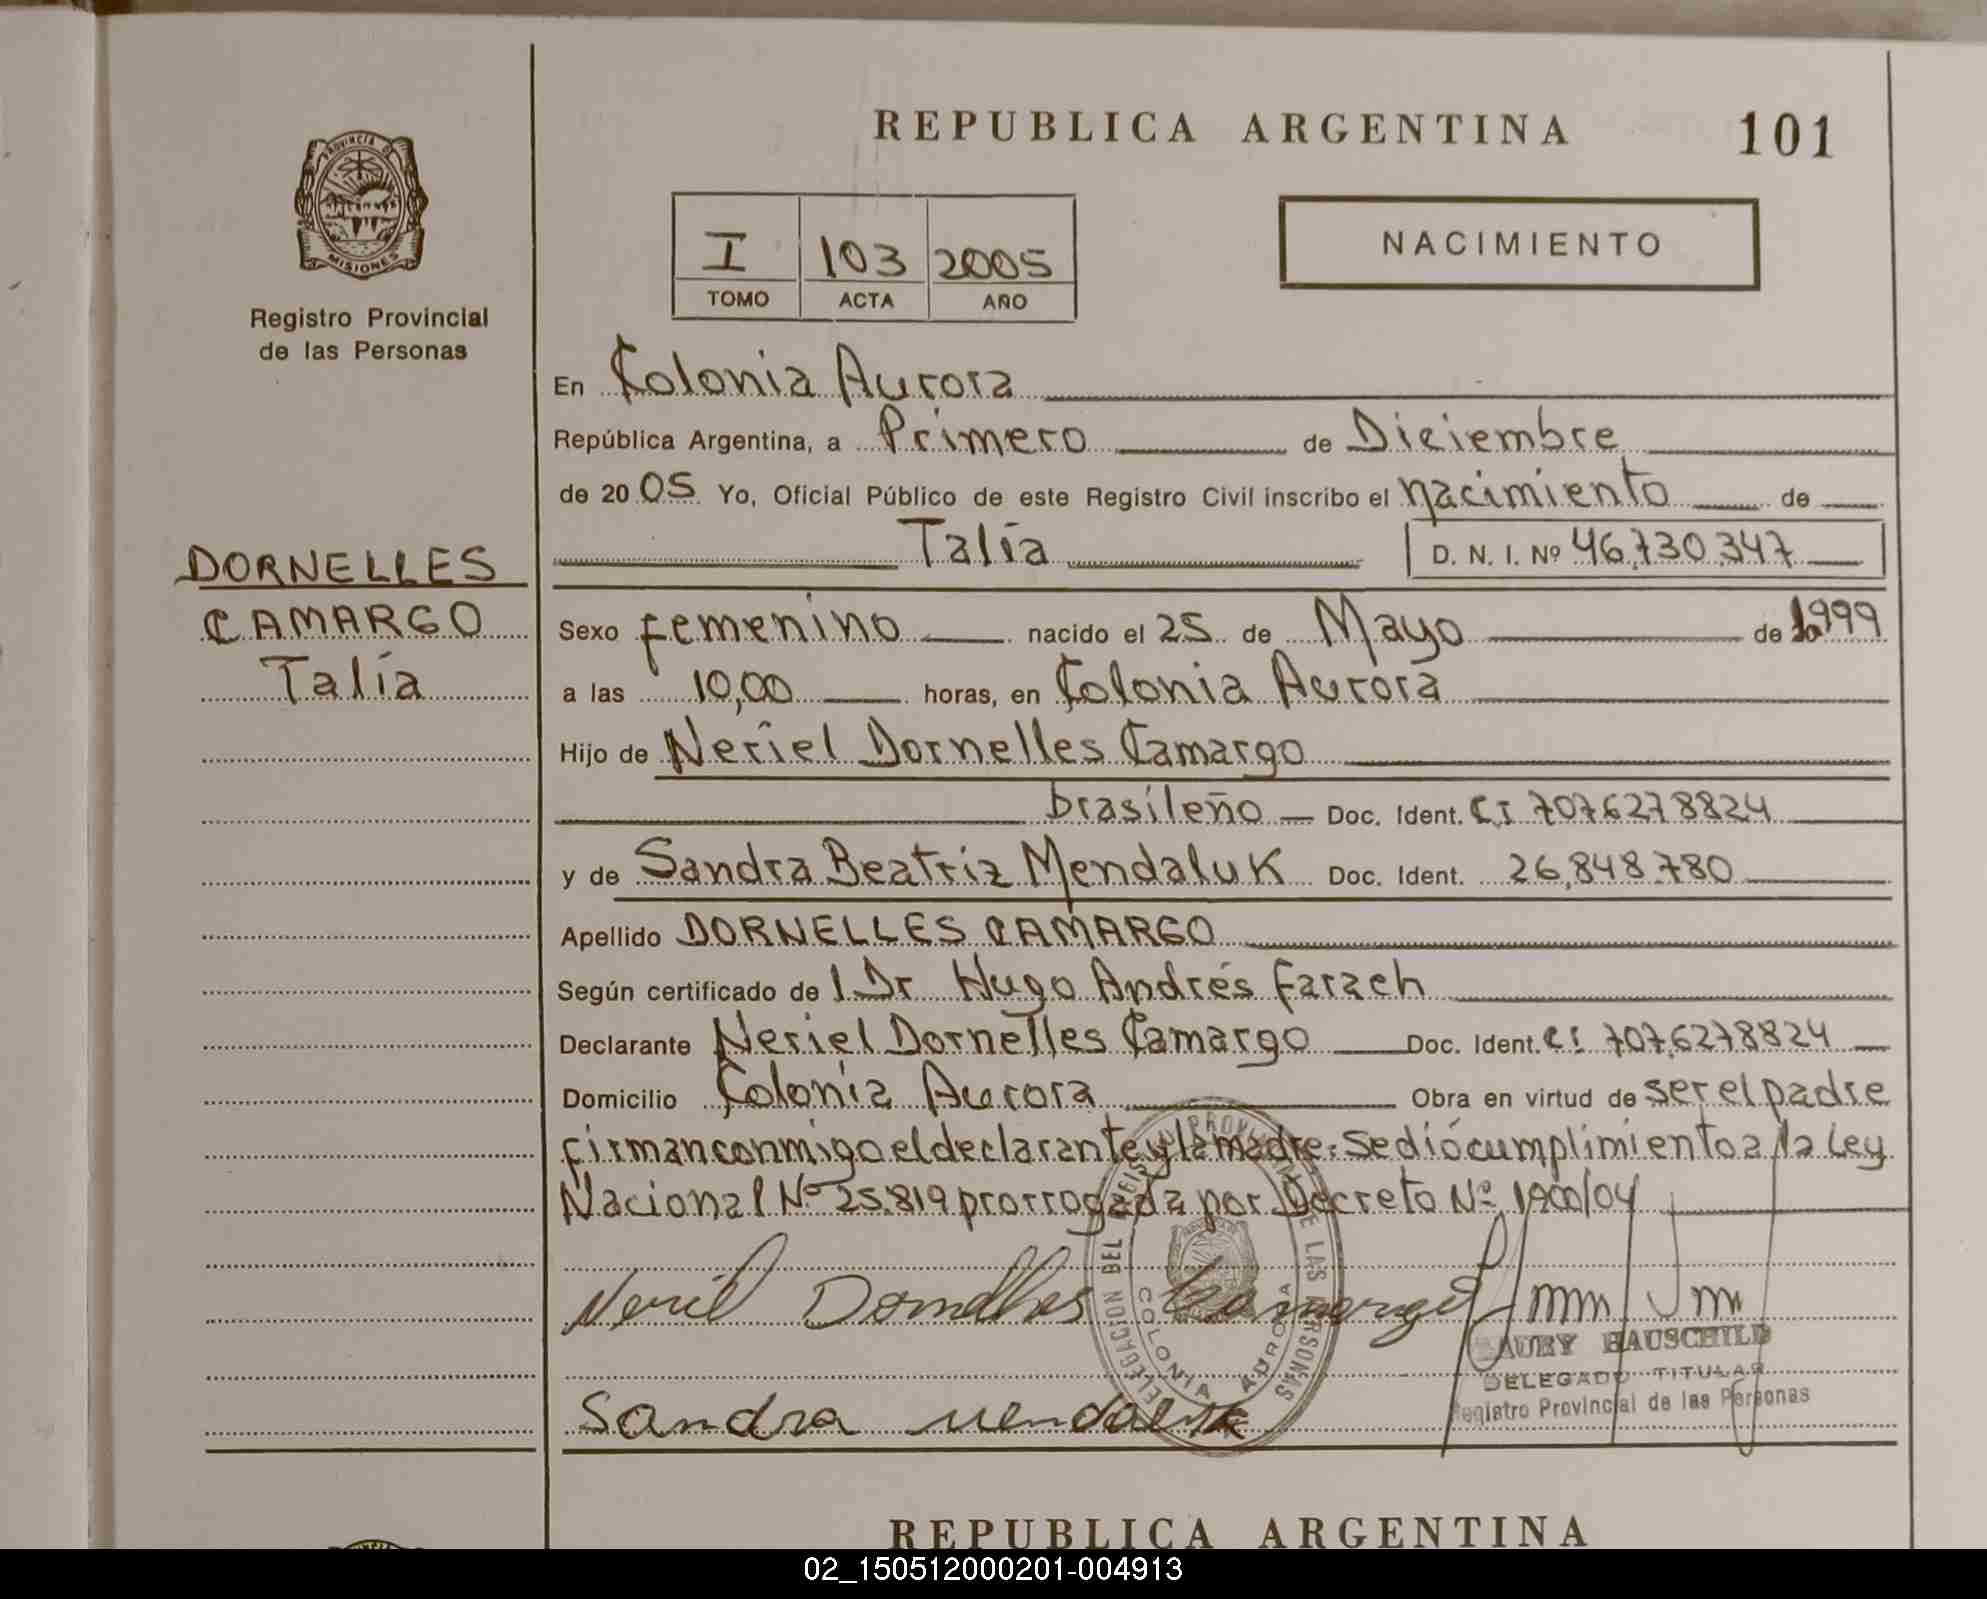 PROVINCIA DE
MISIONES
Registro Provincial
de las Personas
DORNELLES
CAMARGO
Talía
REPUBLICA ARGENTINA 101
I 103 2005
TOMO ACTA AÑO
NACIMIENTO
En Colonia Aurora
República Argentina, a Primero de Diciembre
de 20 05 Yo, Oficial Público de este Registro Civil inscribo el nacimiento de
Talía D. N. I. Nº 46,730,347
Sexo femenino nacido el 25 de Mayo de 1999
a las 10,00 horas, en Colonia Aurora
Hijo de Neriel Dornelles Camargo
brasileño Doc. Ident. CI 7076278824
y de Sandra Beatriz Mendaluk Doc. Ident. 26,848.780
Apellido DORNELLES CAMARGO
Según certificado de l Dr Hugo Andrés Farach
Declarante Neriel Dornelles Camargo Doc. Ident. CI 7076278824
Domicilio Colonia Aurora Obra en virtud de ser el padre
firman conmigo el declarante y la madre. Se dió cumplimiento a la Ley
Nacional Nº 25.819 prorrogada por Decreto Nº 1900/04
Neril Dornelles Camargo
DELEGACION DEL REGISTRO PROVINCIAL DE LAS PERSONAS
COLONIA AURORA
HAUSCHILD
DELEGADO TITULAR
Registro Provincial de las Personas
Sandra Mendaluk
REPUBLICA ARGENTINA
02_150512000201-004913